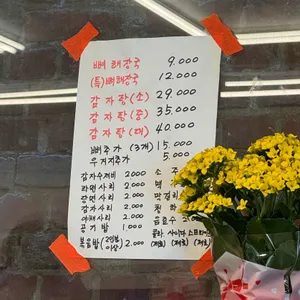 뼈해장국 9.000
(특)뼈해장국 12.000
감자탕(소) 29.000
감자탕(중) 35.000
감자탕(대) 40.000
뼈추가 (3개) 15.000
우거지추가 5.000
감자수제비 2000 소주
라면사리 2.000
당면사리 2.000 막걸리
감자사리 2.000 청하
야채사리 2.000 음료수
공기밥 1.000 콜라 사이다
볶음밥(2인분 이상) 2.000